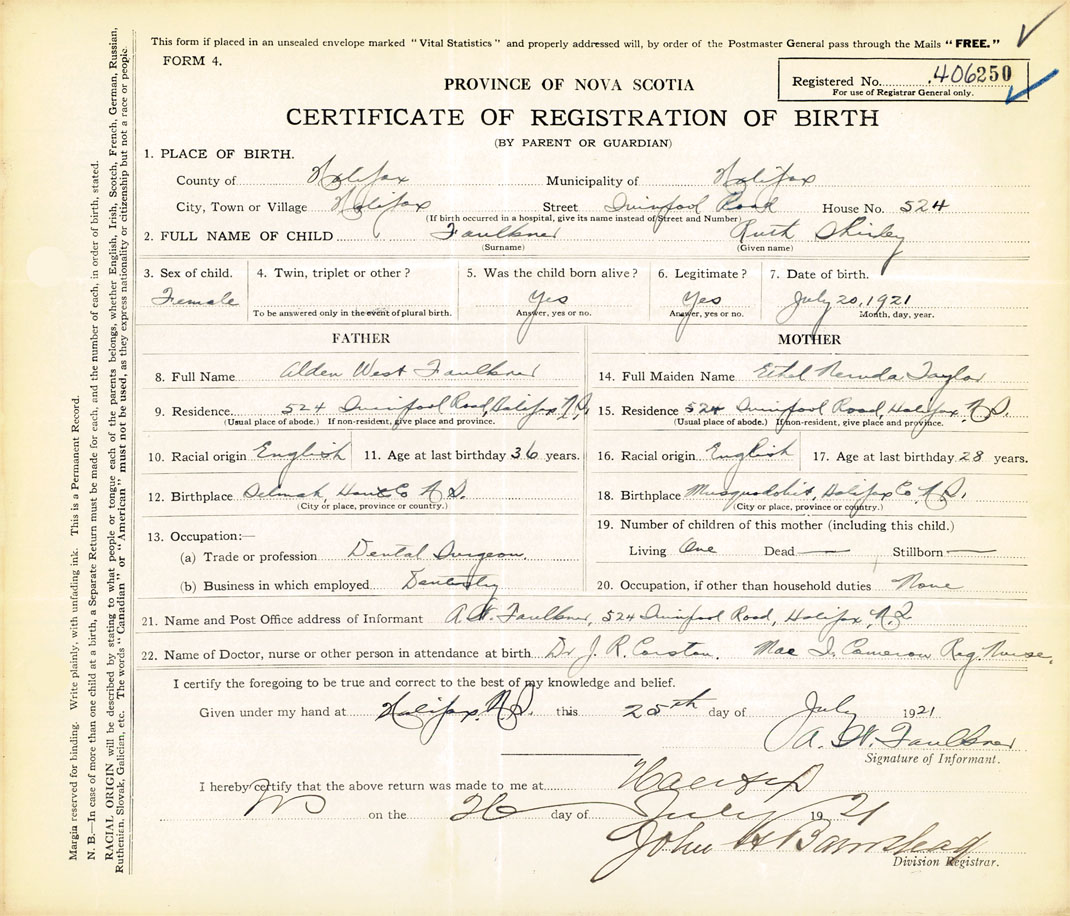 This form if placed in an unsealed envelope marked "Vital Statistics" and properly addressed will, by order of the Postmaster General pass through the Mails "FREE."
FORM 4.
Registered No. 406250
For use of Registrar General only.
PROVINCE OF NOVA SCOTIA
CERTIFICATE OF REGISTRATION OF BIRTH
(BY PARENT OR GUARDIAN)
1. PLACE OF BIRTH.
County of Halifax Municipality of Halifax
City, Town or Village Halifax Street Quinpool Road House No. 524
(If birth occurred in a hospital, give its name instead of Street and Number)
2. FULL NAME OF CHILD Faulkner Ruth Shirley
(Surname) (Given name)
3. Sex of child. 4. Twin, triplet or other? 5. Was the child born alive? 6. Legitimate? 7. Date of birth.
Female Yes Yes July 20, 1921
To be answered only in the event of plural birth. Answer, yes or no. Answer, yes or no. Month, day, year.
FATHER MOTHER
8. Full Name Alden West Faulkner 14. Full Maiden Name Ethel Taylor
9. Residence. 524 Quinpool Road, Halifax, N.S. 15. Residence 524 Quinpool Road, Halifax, N.S.
(Usual place of abode.) If non-resident, give place and province. (Usual place of abode.) If non-resident, give place and province.
10. Racial origin English 11. Age at last birthday 36 years. 16. Racial origin English 17. Age at last birthday 28 years.
12. Birthplace Selmah, Hants Co N.S. 18. Birthplace Musquodobit, Halifax Co N.S.
(City or place, province or country.) (City or place, province or country.)
19. Number of children of this mother (including this child.)
13. Occupation:—
(a) Trade or profession Dental Surgeon Living One Dead — Stillborn —
(b) Business in which employed Dentistry 20. Occupation, if other than household duties None
21. Name and Post Office address of Informant A.W. Faulkner, 524 Quinpool Road, Halifax, N.S.
22. Name of Doctor, nurse or other person in attendance at birth Dr J. R. Corston. Mae I. Cameron Reg. Nurse.
I certify the foregoing to be true and correct to the best of my knowledge and belief.
Given under my hand at Halifax, N.S. this 25th day of July 1921
A. W. Faulkner
Signature of Informant.
I hereby certify that the above return was made to me at Halifax
NS on the 26 day of July 1921
John H Barnstead
Division Registrar.
Margin reserved for binding. Write plainly, with unfading ink. This is a Permanent Record.
N. B.—In case of more than one child at a birth, a Separate Return must be made for each, and the number of each, in order of birth, stated.
RACIAL ORIGIN will be described by stating to what people or tongue each of the parents belongs, whether English, Irish, Scotch, French, German, Russian,
Ruthenian, Slovak, Galician, etc. The words "Canadian" or "American" must not be used, as they express nationality or citizenship but not a race or people.